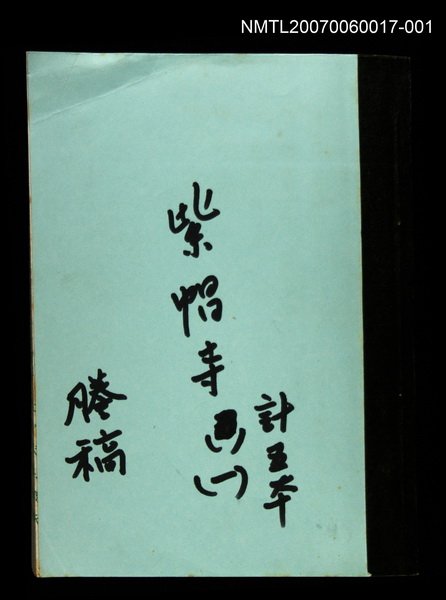 NMTL20070060017-001
計五本
紫帽寺
(一)
謄稿